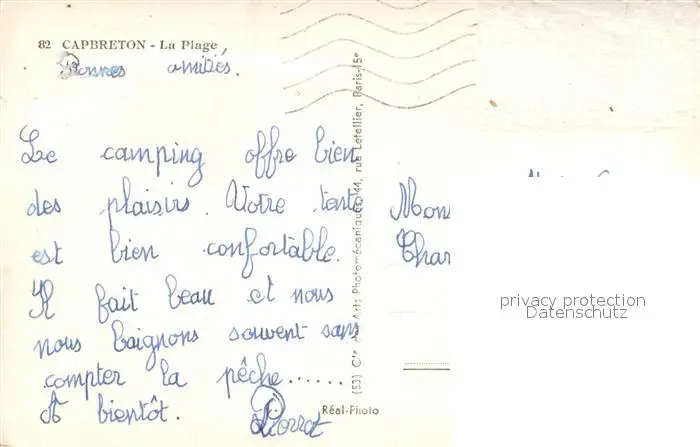 82 CAPBRETON - La Plage
Bonnes amitiés.
Le camping offre bien
des plaisirs. Notre tente
est bien confortable.
Il fait beau et nous
nous baignons souvent sans
compter la pêche......
A bientôt.
Mon
Char
(53) Cie des Arts Photomécaniques, 44, rue Letellier, Paris-15e
Réal-Photo
privacy protection
Datenschutz